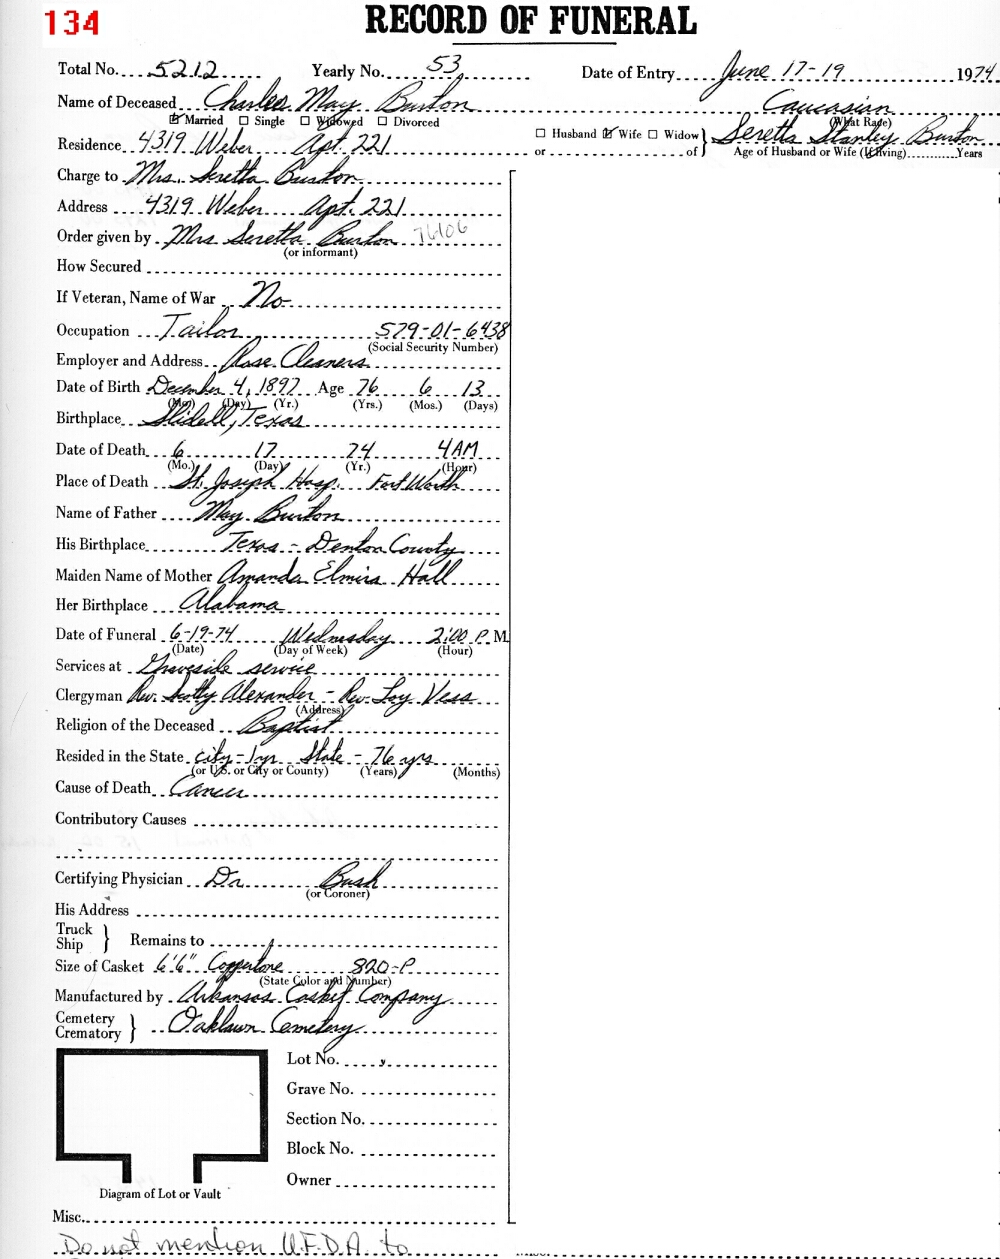 134
RECORD OF FUNERAL
Total No. 5212 Yearly No. 53 Date of Entry June 17-19 1974
Name of Deceased Charles May Burton Caucasian
Married Single Widowed Divorced (What Race)
Residence 4319 Weber Apt. 221 Husband Wife Widow } Seretta Stanley Burton
or of } Age of Husband or Wife (If living) Years
Charge to Mrs. Seretta Burton
Address 4319 Weber Apt. 221
Order given by Mrs Seretta Burton 76106
(or informant)
How Secured
If Veteran, Name of War No
Occupation Tailor 579-01-6438
(Social Security Number)
Employer and Address Rose Cleaners
Date of Birth December 4, 1897 Age 76 6 13
(Mo) (Day) (Yr.) (Yrs.) (Mos.) (Days)
Birthplace Slidell, Texas
Date of Death 6 17 74 4 AM
(Mo.) (Day) (Yr.) (Hour)
Place of Death St. Joseph Hosp. Fort Worth
Name of Father May Burton
His Birthplace Texas - Denton County
Maiden Name of Mother Amanda Elmira Hall
Her Birthplace Alabama
Date of Funeral 6-19-74 Wednesday 2:00 P. M.
(Date) (Day of Week) (Hour)
Services at Graveside service
Clergyman Rev. Scotty Alexander - Rev. Loy Vess
(Address)
Religion of the Deceased Baptist
Resided in the State city - 1 yr State - 76 yrs
(or U.S. or City or County) (Years) (Months)
Cause of Death Cancer
Contributory Causes
Certifying Physician Dr. Bush
(or Coroner)
His Address
Truck
Ship } Remains to
Size of Casket 6'6" Coppertone 820-P
(State Color and Number)
Manufactured by Arkansas Casket Company
Cemetery
Crematory } Oaklawn Cemetery
Lot No.
Grave No.
Section No.
Block No.
Owner
Diagram of Lot or Vault
Misc.
Do not mention U.F.D.A. to